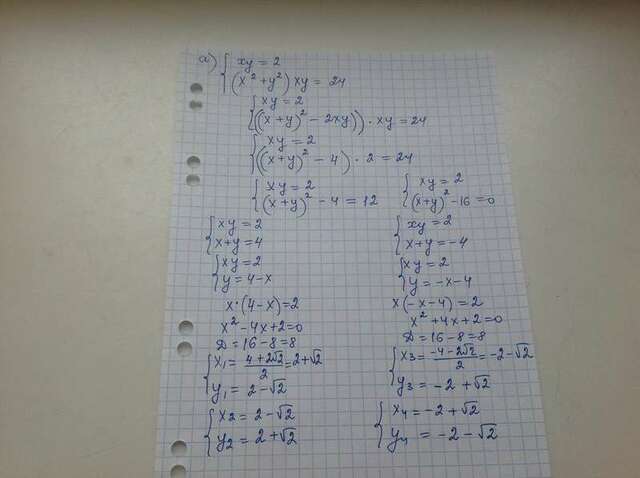 а) { xy = 2
(x² + y²) xy = 24
{ xy = 2
((x+y)² - 2xy)) · xy = 24
{ xy = 2
((x+y)² - 4) · 2 = 24
{ xy = 2
(x+y)² - 4 = 12
{ xy = 2
(x+y)² - 16 = 0
{ xy = 2
x+y = 4
{ xy = 2
y = 4-x
x·(4-x) = 2
x² - 4x + 2 = 0
D = 16 - 8 = 8
{ x₁ = (4+2√2)/2 = 2+√2
y₁ = 2 - √2
{ x₂ = 2 - √2
y₂ = 2 + √2
{ xy = 2
x+y = -4
{ xy = 2
y = -x-4
x(-x-4) = 2
x² + 4x + 2 = 0
D = 16 - 8 = 8
{ x₃ = (-4-2√2)/2 = -2-√2
y₃ = -2 + √2
{ x₄ = -2 + √2
y₄ = -2 - √2